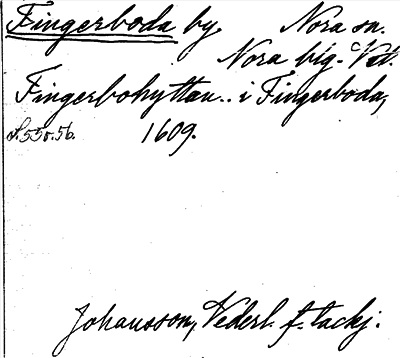 Fingerboda by. Nora sn.
Nora big. Vstl.
Fingerbohyttan.. i Fingerboda,
S. 55o. 56. 1609.
Johansson, Vederl. f. tackj.